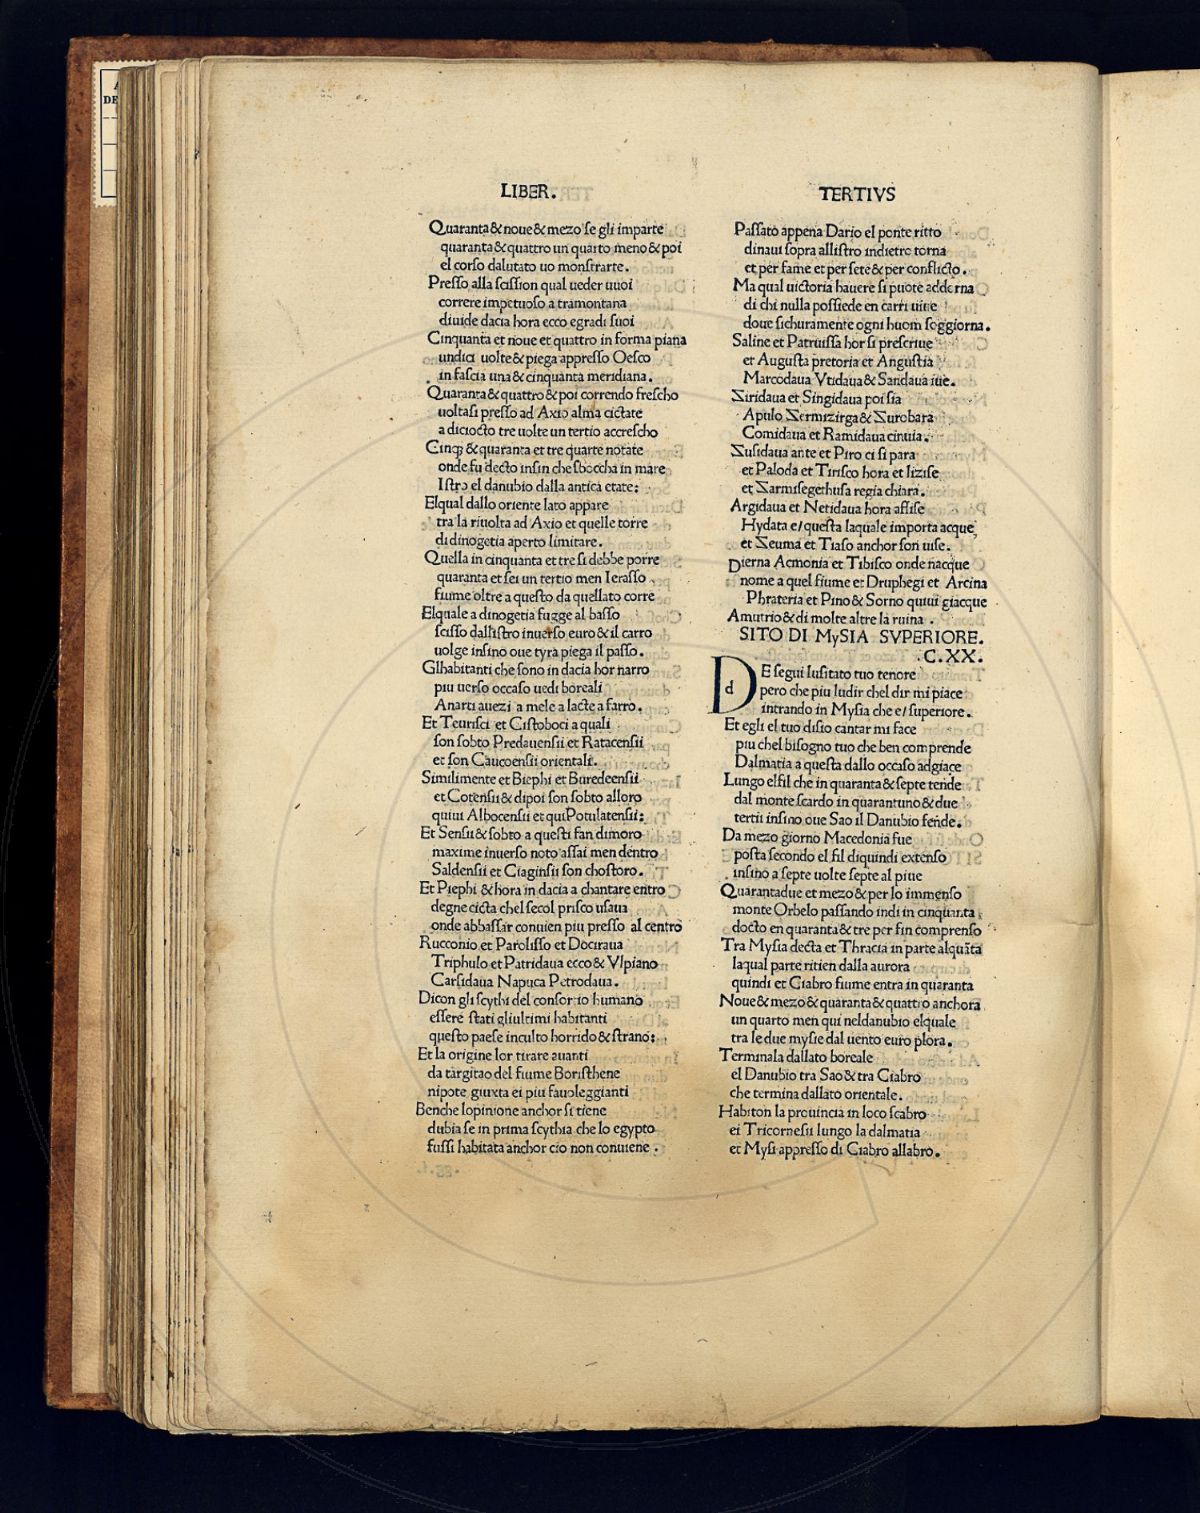 LIBER.
Quaranta & noue & mezo se gli imparte
quaranta & quattro un quarto meno & poi
el corso dalutato uo monstrarte.
Presso alla scission qual ueder uuoi
correre impetuoso a tramontana
diuide dacia hora ecco egradi suoi
Cinquanta et noue et quattro in forma piana
undici uolte & piega appresso Oesco
in fascia una & cinquanta meridiana.
Quaranta & quattro & poi correndo frescho
uoltasi presso ad Axio alma cictate
a diciocto tre uolte un tertio accrescho
Cinqꝫ & quaranta et tre quarte notate
onde fu decto insin che sboccha in mare
Istro el danubio dalla antica etate:
Elqual dallo oriente lato appare
tra la riuolta ad Axio et quelle torre
di dinogetia aperto limitare.
Quella in cinquanta et tre si debbe porre
quaranta et sei un tertio men Ierasso
fiume oltre a questo da quellato corre
Elquale a dinogetia fugge al basso
scisso dallistro inuerso euro & il carro
uolge insino oue tyra piega il passo.
Glhabitanti che sono in dacia hor narro
piu uerso occaso uedi boreali
Anarti auezi a mele a lacte a farro.
Et Teurisci et Cistoboci a quali
son sobto Predauensii et Ratacensii
et son Caucoensii orientali.
Similimente et Biephi et Buredeensii
et Cotensii & dipoi son sobto alloro
quiui Albocensii et qui Potulatensii:
Et Sensii & sobto a questi fan dimoro
maxime inuerso noto assai men dentro
Saldensii et Ciaginsii son chostoro.
Et Piephi & hora in dacia a chantare entro
degne cicta chel secol prisco usaua
onde abbassar conuien piu presso al centro
Rucconio et Parolisso et Dociraua
Triphulo et Patridaua ecco & Vlpiano
Carsidaua Napuca Petrodaua.
Dicon gli scythi del consortio humano
essere stati gliultimi habitanti
questo paese inculto horrido & strano:
Et la origine lor tirare auanti
da targitao del fiume Boristhene
nipote giuxta ei piu fauoleggianti
Benche lopinione anchor si tiene
dubia se in prima scythia che lo egypto
fussi habitata anchor cio non conuiene.
TERTIVS
Passato appena Dario el ponte ritto
dinaui sopra allistro indietro torna
et per fame et per sete & per conflicto.
Ma qual uictoria hauere si puote adderna
di chi nulla possiede en carri uiue
doue sichuramente ogni huom soggiorna.
Saline et Patruissa hor si prescriue
et Augusta pretoria et Angustia
Marcodaua Vtidaua & Sandaua iue.
Ziridaua et Singidaua poi sia
Apulo Zermizirga & Zurobara
Comidaua et Ramidaua cinuia.
Zusidaua ante et Piro ci si para
et Paloda et Tirisco hora et lizise
et Zarmisegethusa regia chiara.
Argidaua et Netidaua hora assise
Hydata e/questa laquale importa acque
et Zeuma et Tiaso anchor son uise.
Dierna Acmonia et Tibisco onde nacque
nome a quel fiume et Druphegi et Arcina
Phrateria et Pino & Sorno quiui giacque
Amutrio & di molte altre la ruina.
SITO DI MySIA SVPERIORE.
.C.XX.
DE segui lusitato tuo tenore
pero che piu ludir chel dir mi piace
intrando in Mysia che e/superiore.
Et egli el tuo disio cantar mi face
piu chel bisogno tuo che ben comprende
Dalmatia a questa dallo occaso adgiace
Lungo elfil che in quaranta & septe tende
dal monte scardo in quarantuno & due
tertii insino oue Sao il Danubio fende.
Da mezo giorno Macedonia fue
posta secondo el fil diquindi extenso
insino a septe uolte septe al piue
Quarantadue et mezo & per lo immenso
monte Orbelo passando indi in cinquanta
docto en quaranta & tre per fin comprenso
Tra Mysia decta et Thracia in parte alquāta
laqual parte ritien dalla aurora
quindi et Ciabro fiume entra in quaranta
Noue & mezo & quaranta & quattro anchora
un quarto men qui neldanubio elquale
tra le due mysie dal uento euro plora.
Terminala dallato boreale
el Danubio tra Sao & tra Ciabro
che termina dallato orientale.
Habiton la prouincia in loco scabro
ei Tricornesii lungo la dalmatia
et Mysi appresso di Ciabro allabro.